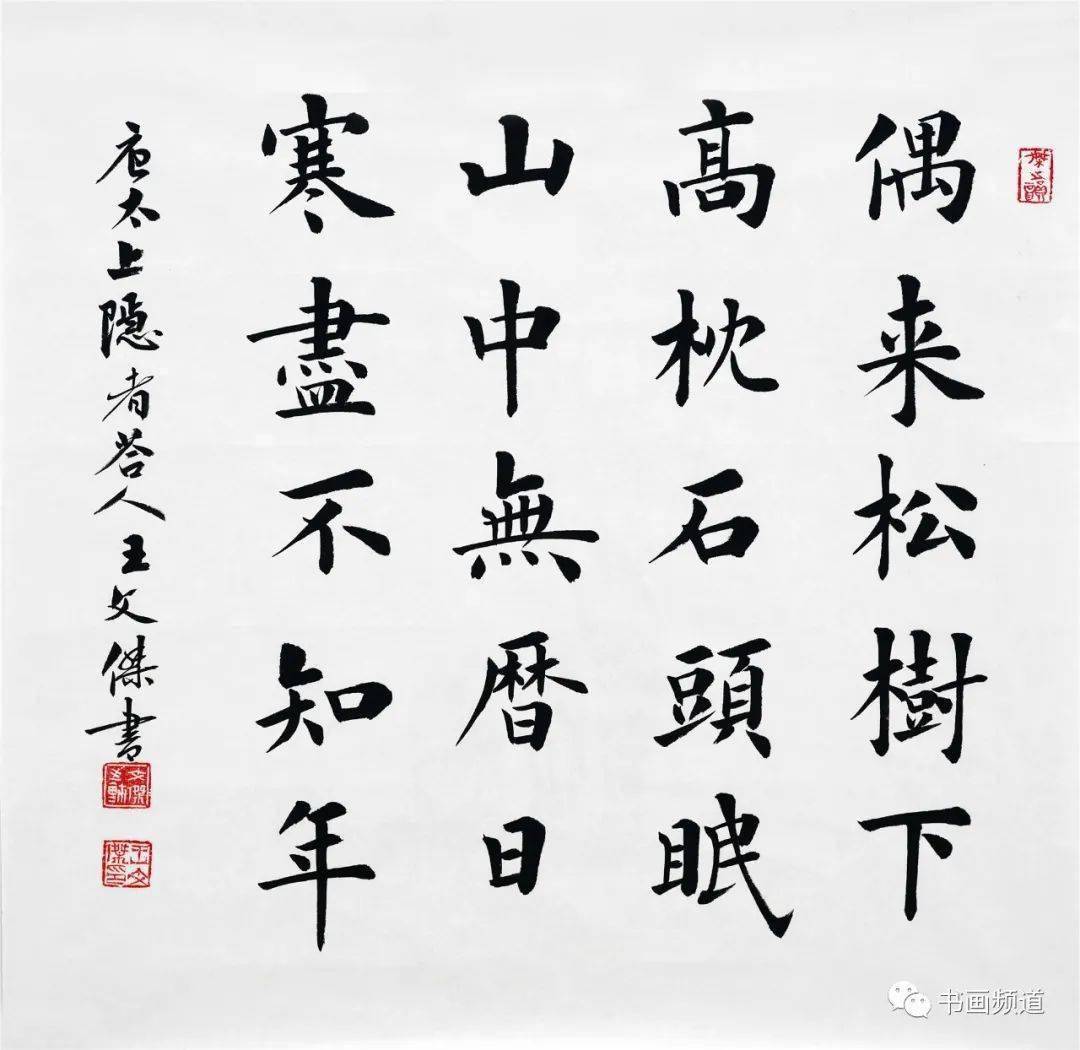 偶来松樹下
高枕石頭眠
山中無曆日
寒盡不知年
唐太上隱者答人王文傑書
王文傑印
书画频道